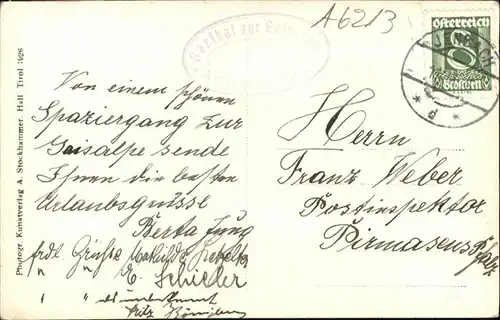 A6213
Gasthof zur
Österreich
8
Groschen
JENBACH
* d *
Photogr. Kunstverlag A. Stockhammer, Hall Tirol 1928
Von einem schönen
Spaziergang zur
Gaisalpe sende
Ihnen die besten
Urlaubsgrüsse
Berta Jung
frdl Grüsse
" " E. Schieler
" " als unbekannt
Fritz
Herrn
Franz Weber
Postinspektor
Pirmasens
Pfalz